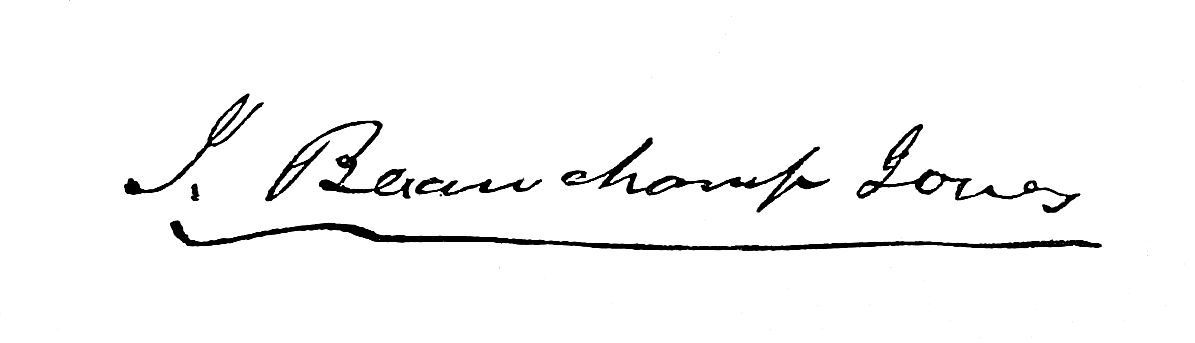 J. Beauchamp Jones